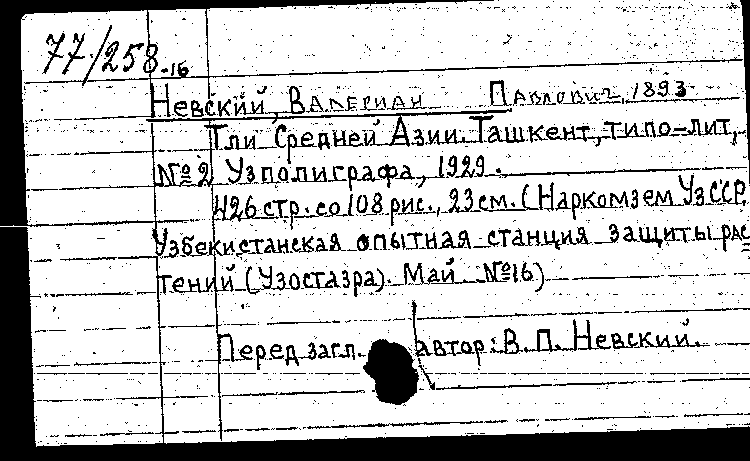 77/258-16
Невский, Валериан Павлович, 1893
Тли Средней Азии. Ташкент, типо-лит,
№2 Узполиграфа, 1929.
426 стр. со 108 рис., 23 см. (Наркомзем УзССР.
Узбекистанская опытная станция защиты рас
тений (Узостазра). Май №16)
Перед загл. автор: В. П. Невский.